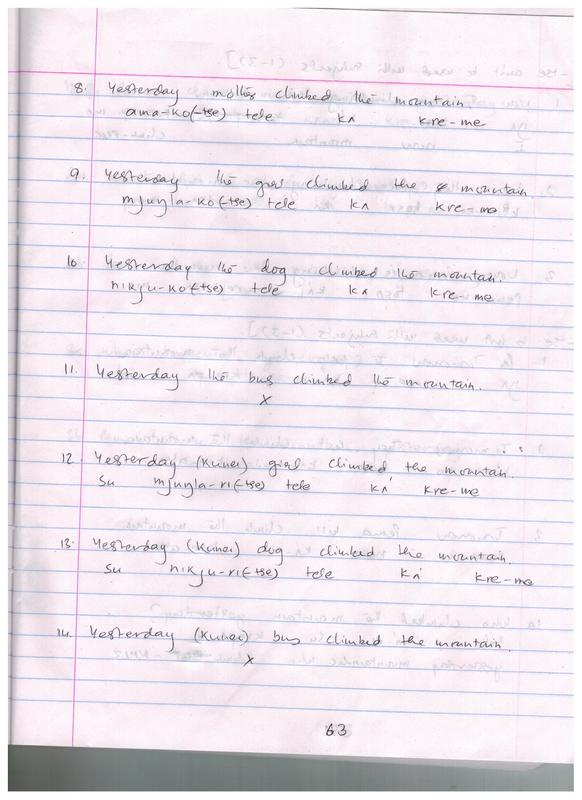 8. Yesterday mother climbed the mountain
ama-ko(-tse) tele kʌ kre-me
9. Yesterday the girl climbed the mountain
mjuŋla-ko(-tse) tele kʌ kre-me
10 Yesterday the dog climbed the mountain.
nikju-ko(-tse) tele kʌ kre-me
11. Yesterday the bus climbed the mountain.
X
12. Yesterday (Kunei) girl climbed the mountain.
su mjuŋla-ri(-tse) tele kʌ kre-me
13. Yesterday (Kunei) dog climbed the mountain.
su nikju-ri(-tse) tele kʌ kre-me
14. Yesterday (Kunei) bus climbed the mountain.
X
63